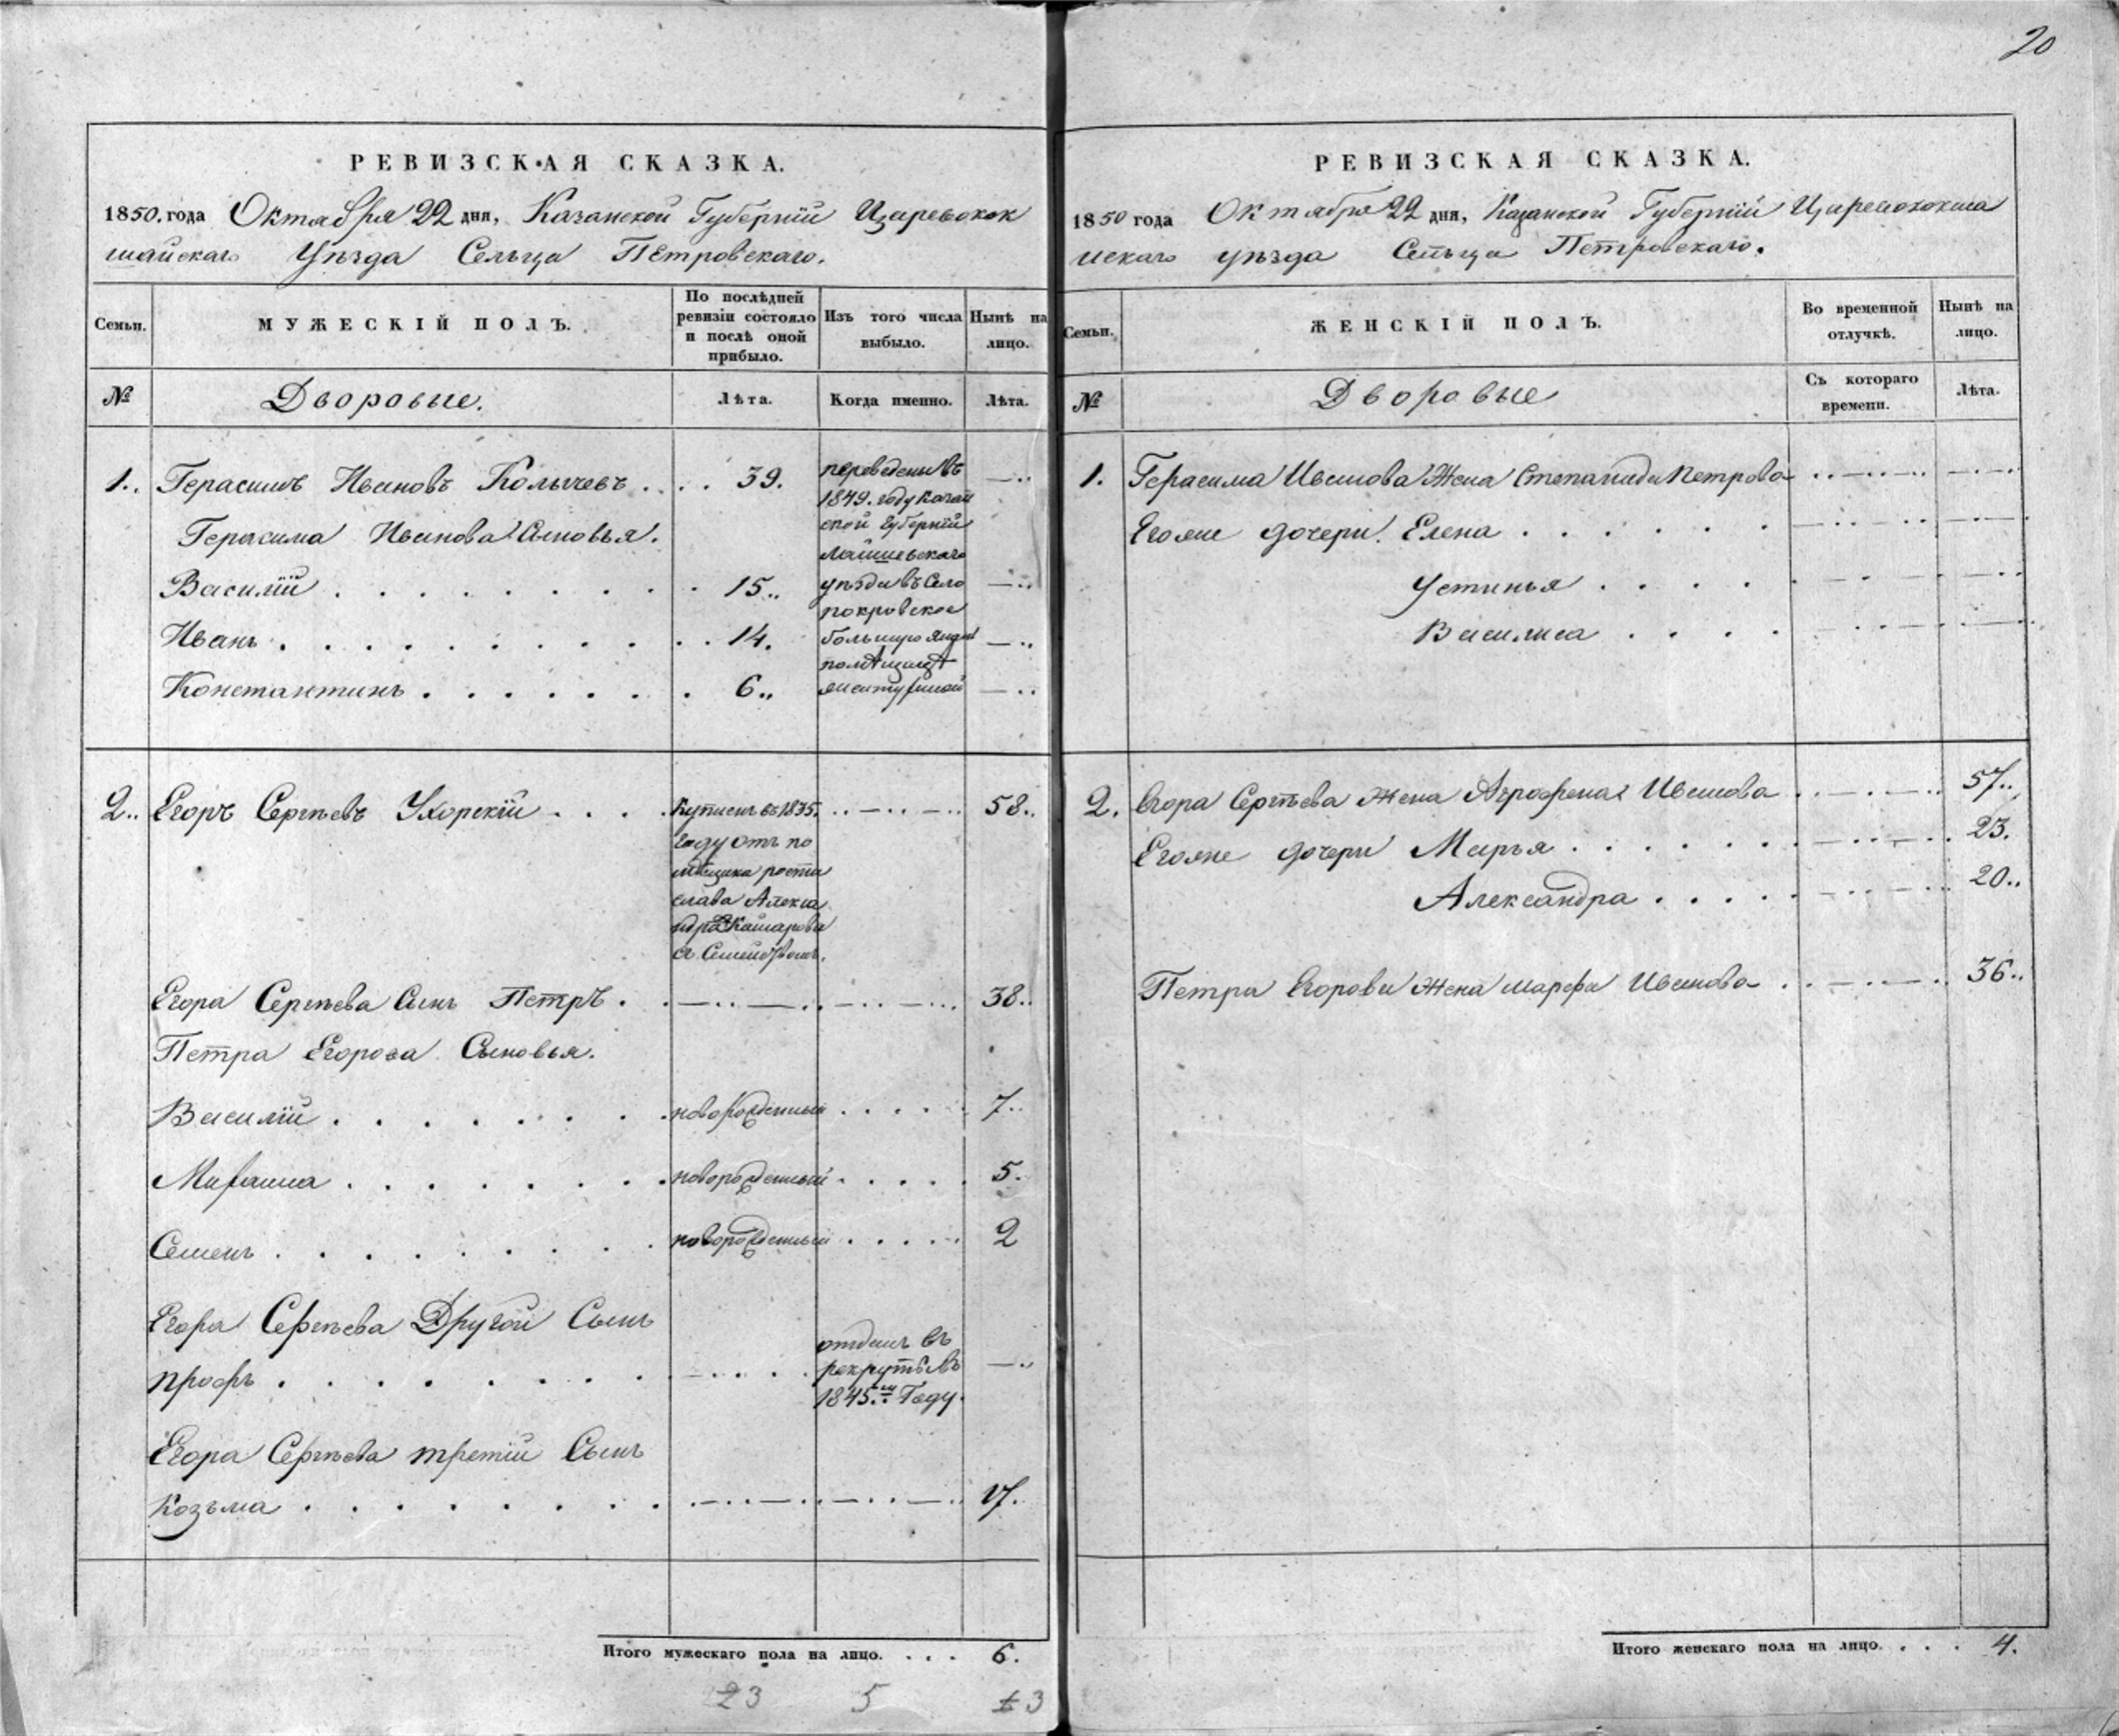 20
РЕВИЗСКАЯ СКАЗКА.
1850. года Октября 22 дня, Казанской Губерніи Царевокок
шайскаго Уѣзда Сельца Петровскаго.
Семьи.
МУЖЕСКІЙ ПОЛЪ.
По послѣдней
ревизіи состояло
и послѣ оной
прибыло.
Изъ того числа
выбыло.
Нынѣ на
лицо.
№
Дворовые.
Лѣта.
Когда именно.
Лѣта.
1. Герасимъ Ивановъ Колычевъ . . . 39.
переведены въ
1849. году Казан
ской Губерніи
Лаишевскаго
уѣзда въ Село
покровское
Герасима Иванова Сыновья.
Василій . . . . . . . . 15..
Иванъ . . . . . . . . . 14.
Константинъ . . . . . . . 6..
2.. Егоръ Сергѣевъ Ухорскій . . . .
Купленъ въ 1835.
году отъ по
мѣщика рости
слава Алекса
58..
Егора Сергѣева Сынъ Петръ . . 38..
Петра Егорова Сыновья.
Василій . . . . . . . . новорожденный . . . . . 7..
. . . . . . . . новорожденный . . . . . 5.
Семенъ . . . . . . . . . новорожденный . . . . . 2
Егора Сергѣева Другой Сынъ
профъ . . . . . . . . .
отданъ въ
рекруты въ
1845.м Году.
Егора Сергѣева третій Сынъ
Козьма . . . . . . . . 17.
Итого мужескаго пола на лицо. . . . 6.
23 5 3
РЕВИЗСКАЯ СКАЗКА.
1850 года Октября 22 дня, Казанской Губерніи Царевококша
йскаго уѣзда Сельца Петровскаго.
Семьи.
ЖЕНСКІЙ ПОЛЪ.
Во временной
отлучкѣ.
Нынѣ на
лицо.
№
Дворовые
Съ котораго
времени.
Лѣта.
1. Герасима Иванова Жена Степанида Петрова
Егоже дочери Елена . . . . . .
Устинья . . . .
Василиса . . . .
2. Егора Сергѣева Жена Агрофена Иванова 57..
Егоже дочери Марья . . . . . . . 23.
Александра . . . . . 20..
Петра Егорова Жена Марфа Иванова . 36..
Итого женскаго пола на лицо. . . . 4.